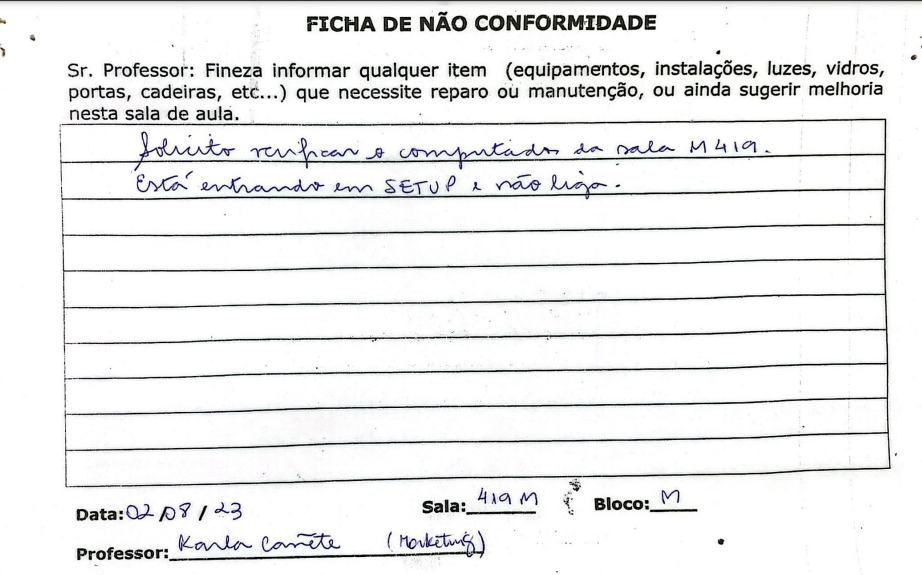 FICHA DE NÃO CONFORMIDADE
Sr. Professor: Fineza informar qualquer item (equipamentos, instalações, luzes, vidros,
portas, cadeiras, etc...) que necessite reparo ou manutenção, ou ainda sugerir melhoria
nesta sala de aula.
Solicito verificar o computador da sala M419.
Está entrando em SETUP e não liga.
Data: 02/08/23 Sala: 419 M Bloco: M
Professor: Karla Cañete (Marketing)